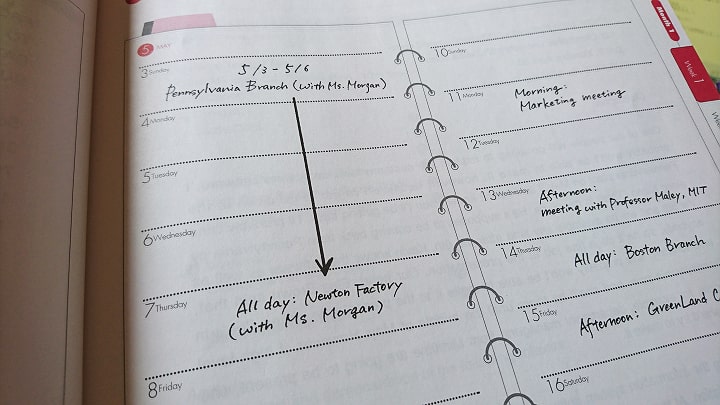 5 MAY
3 Sunday
5/3 - 5/6
Pennsylvania Branch (with Ms. Morgan)
4 Monday
5 Tuesday
6 Wednesday
7 Thursday
All day: Newton Factory
(with Ms. Morgan)
8 Friday
10 Sunday
11 Monday
Morning:
Marketing meeting
12 Tuesday
13 Wednesday
Afternoon:
meeting with Professor Maley, MIT
14 Thursday
All day: Boston Branch
15 Friday
Afternoon: GreenLand C
16 Saturday
Month 1
Week 1